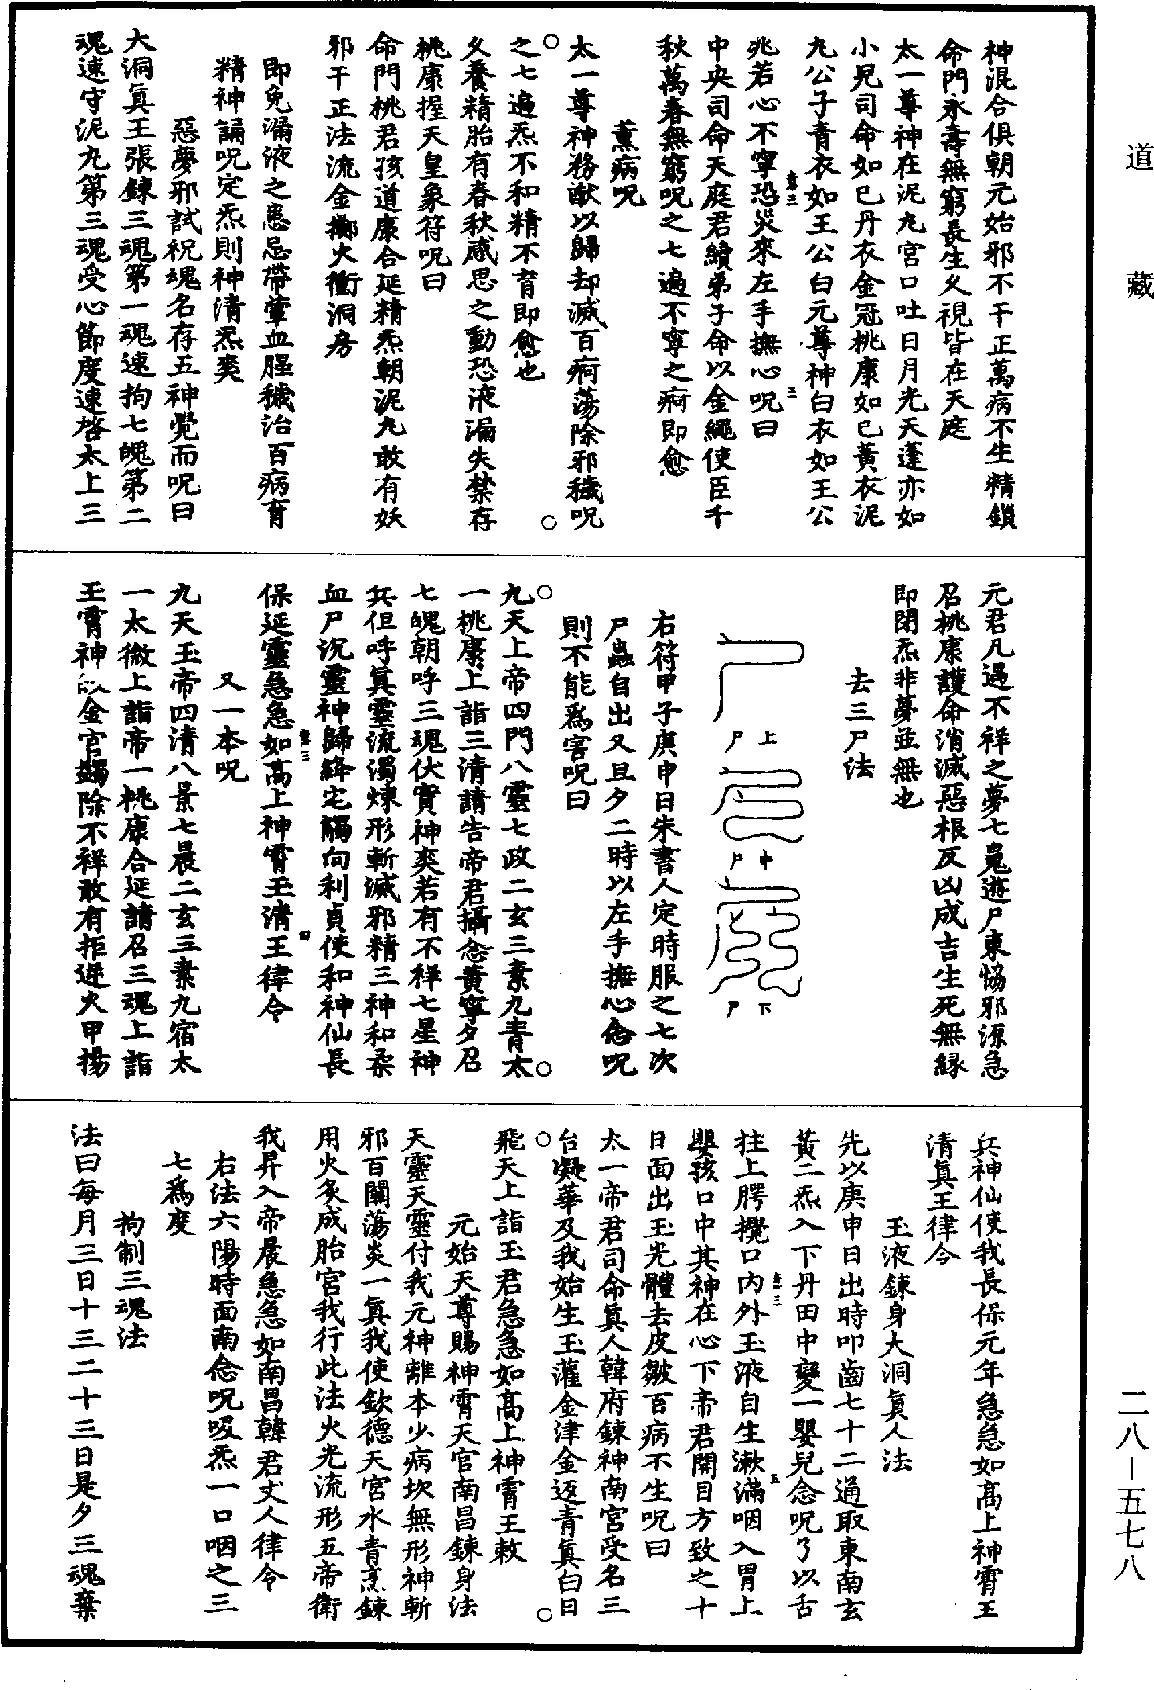 道藏
神混合俱朝元始邪不干正萬病不生精鎖
命門永壽無窮長生久視皆在天庭
太一尊神在泥丸宮口吐日月光天蓬亦如
小兒司命如巳丹衣金冠桃康如巳黃衣泥
九公子青衣如王公白元尊神白衣如王公
兆若心不寧恐災來左手撫心呪曰
中央司命天庭君續弟子命以金繩使臣千
秋萬春無窮呪之七遍不寧之痾即愈
薰病呪
太一尊神務猷以歸却滅百痾蕩除邪穢呪
之七遍炁不和精不育即愈也
久養精胎有春秋感思之動恐液漏失禁存
桃康握天皇象符呪曰
命門桃君孩道康合延精炁朝泥丸敢有妖
邪干正法流金擲火衝洞房
即免漏液之患忌帶葷血腥穢治百病育
精神誦呪定炁則神清炁爽
惡夢邪試祝魂名存五神覺而呪曰
大洞真王張鍊三魂第一魂速拘七魄第二
魂速守泥丸第三魂受心節度速啓太上三
元君凡遇不祥之夢七鬼遊尸東惱邪源急
召桃康護命消滅惡根反凶成吉生死無緣
即閉炁非夢並無也
去三尸法
上尸
中尸
下尸
右符甲子庚申日朱書人定時服之七次
尸蟲自出又旦夕二時以左手撫心念呪
則不能爲害呪曰
九天上帝四門八靈七政二玄三素九青太
一桃康上詣三清請告帝君攝念黃寧夕召
七魄朝呼三魂伏實神爽若有不祥七星神
兵但呼真靈流濁煉形斬滅邪精三神和柔
血尸沉靈神歸絳宅觸向利貞使和神仙長
保延靈急急如高上神霄玉清王律令
又一本呪
九天玉帝四清八景七晨二玄三素九宿太
一太微上詣帝一桃康合延請召三魂上詣
玉霄神金官蠲除不祥敢有拒逆火甲揚
兵神仙使我長保元年急急如高上神霄玉
清真王律令
玉液鍊身大洞真人法
先以庚申日出時叩齒七十二通取東南玄
黃二炁入下丹田中變一嬰兒念呪了以舌
拄上腭攪口內外玉液自生漱滿咽入胃上
嬰孩口中其神在心下帝君開目方致之十
日面出玉光體去皮皺百病不生呪曰
太一帝君司命真人韓府鍊神南宮受名三
台凝華及我始生玉灌金津金返青真白日
飛天上詣玉君急急如高上神霄王敕
元始天尊賜神霄天官南昌鍊身法
天靈天靈付我元神離本少病坎無形神斬
邪百關蕩炎一真我使欽德天宮水青烹鍊
用火灸成胎宮我行此法火光流形五帝衛
我昇入帝晨急急如南昌韓君丈人律令
右法六陽時面南念呪吸炁一口咽之三
七爲度
拘制三魂法
法曰每月三日十三二十三日是夕三魂棄
二八—五七八